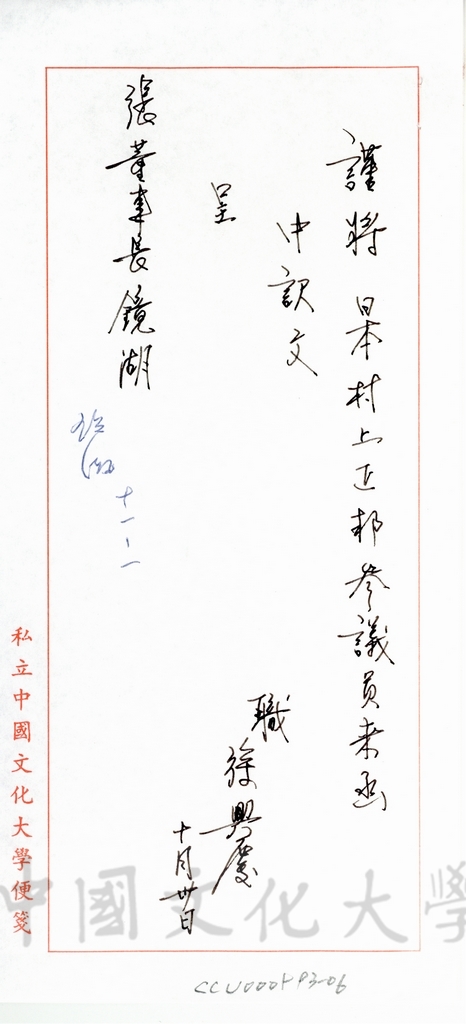 謹將 日本村上正邦參議員來函
中訳文
呈
張董事長鏡湖
十一、一
職 徐興慶
十月卅日
私立中國文化大學便箋
中國文化大學
CCU000193-06